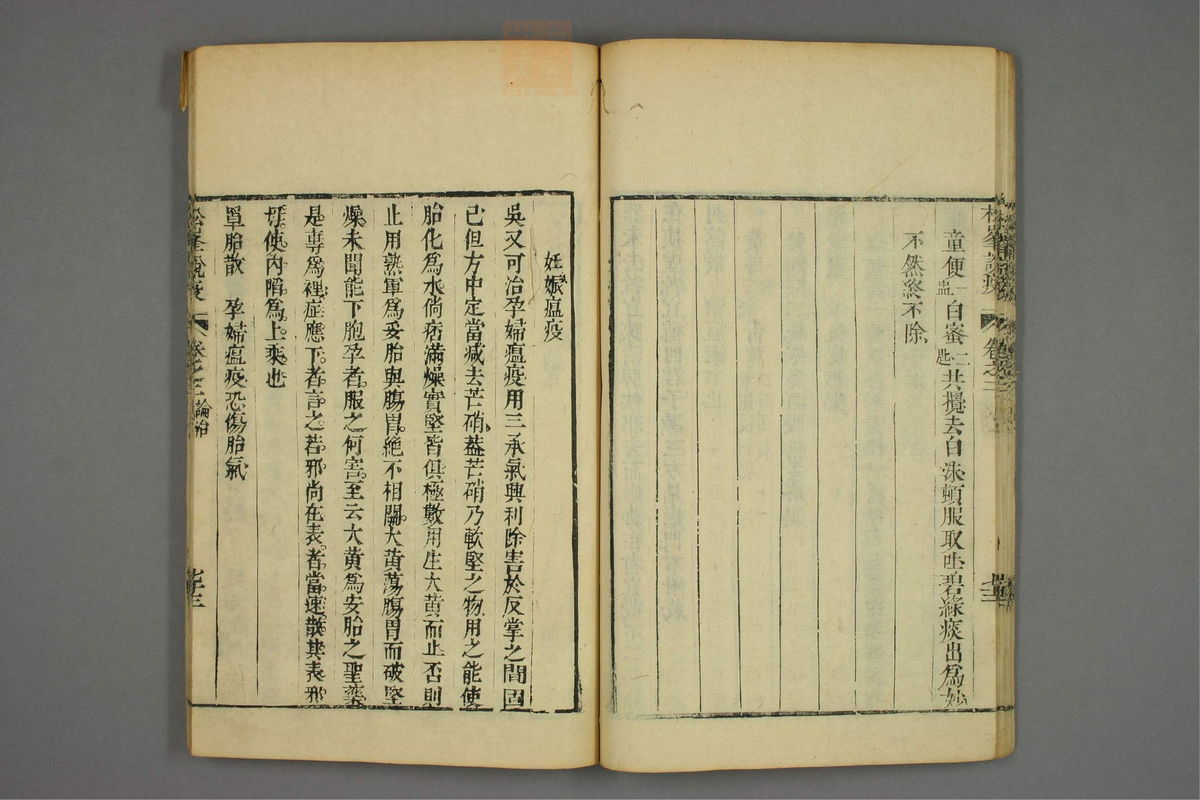 童便一盅白蜜二匙共攪去白沫頓服取吐碧綠痰出爲妙
不然終不除
妊娠瘟疫
吳又可治孕婦瘟疫用三承氣興利除害於反掌之間固
已但方中定當減去芒硝蓋芒硝乃軟堅之物用之能使
胎化爲水倘痞滿燥實堅皆俱極數用生大黃而止否則
止用熟軍爲妥胎與腸胃絕不相關大黃蕩腸胃而破堅
燥未聞能下胞孕者服之何害至云大黃爲安胎之聖藥
是專爲裡症應下者言之若邪尚在表者當速散其表邪
毋使內陷爲上乘也
罩胎散 孕婦瘟疫恐傷胎氣
松峯說疫 卷之三 論治